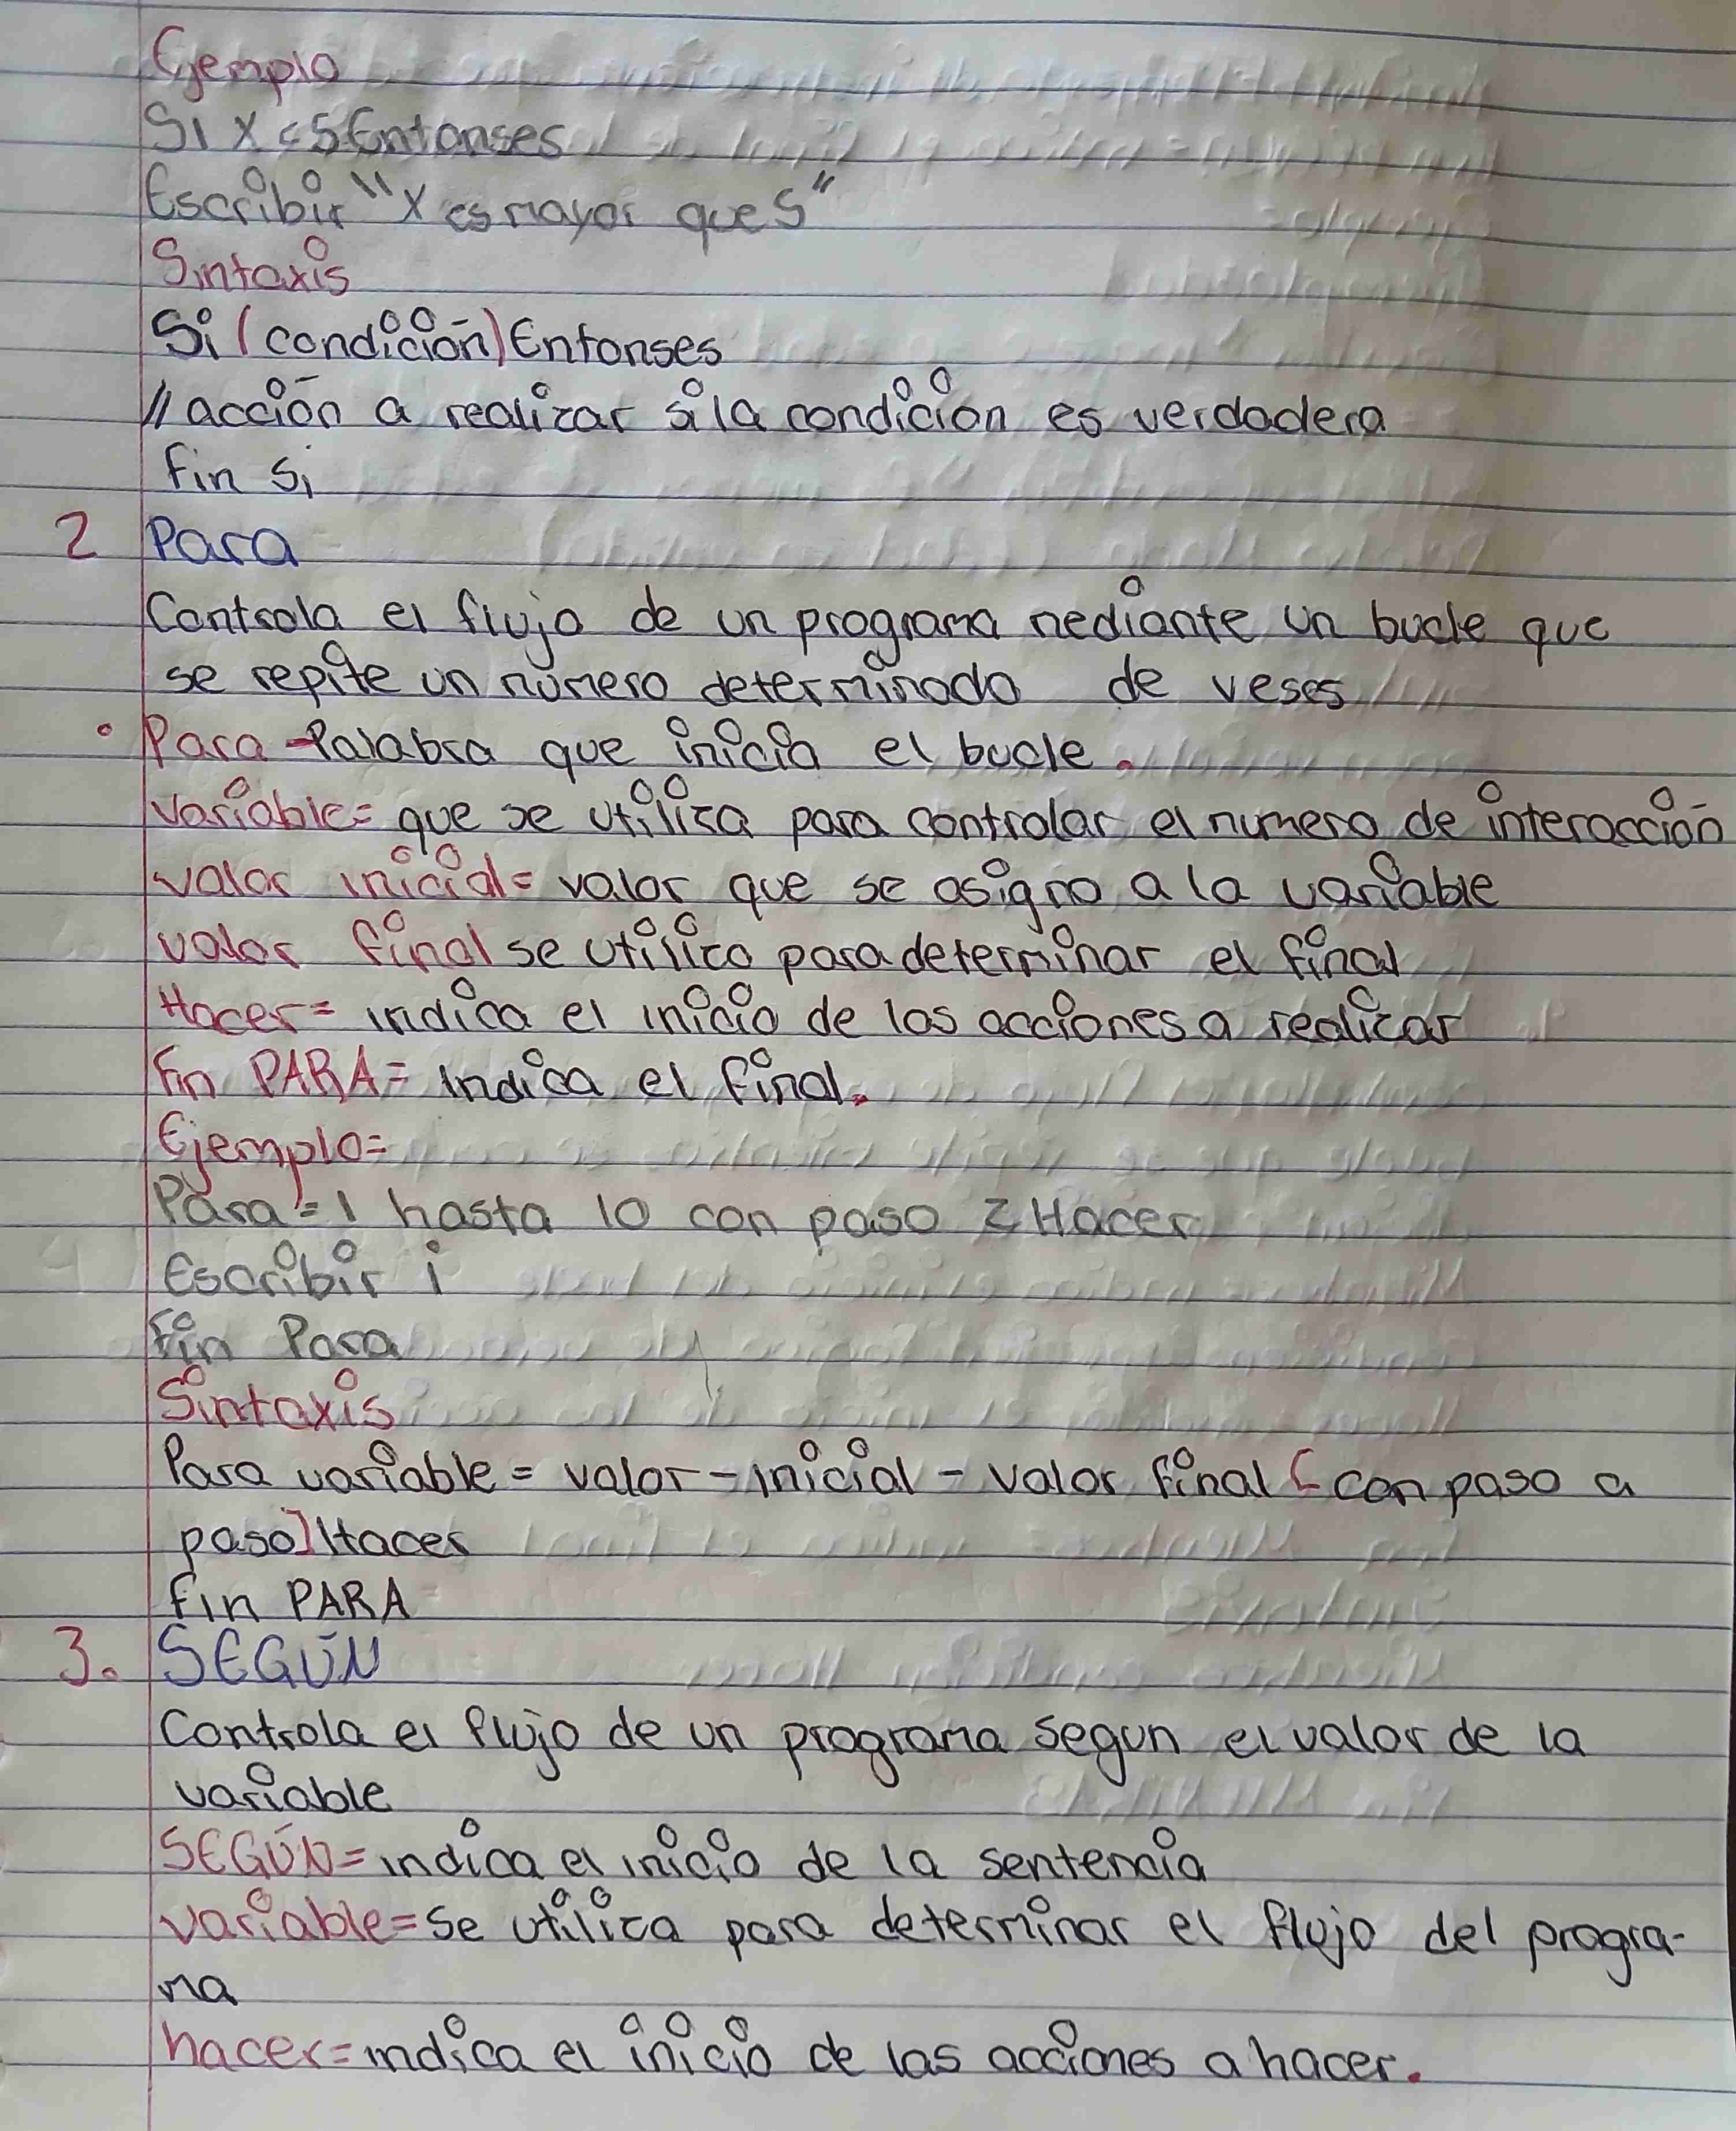 Ejemplo
Si x < 5 Entonses
Escribir "x es mayor que 5"
Sintaxis
Si (condición) Entonses
// acción a realizar si la condición es verdadera
fin si
2 Para
Controla el flujo de un programa mediante un bucle que
se repite un número determinado de veses
• Para - Palabra que inicia el bucle.
variable = que se utiliza para controlar el numero de interacción
valor inicial = valor que se asigna a la variable
valor final se utiliza para determinar el final
Hacer = indica el inicio de las acciones a realizar
Fin PARA = indica el final.
Ejemplo =
Para = 1 hasta 10 con paso 2 Hacer
Escribir i
Fin Para
Sintaxis
Para variable = valor - inicial - valor final [con paso a
paso] Hacer
fin PARA
3. SEGÚN
Controla el flujo de un programa segun el valor de la
variable
SEGÚN = indica el inicio de la sentencia
variable = se utiliza para determinar el flujo del progra-
ma
hacer = indica el inicio de las acciones a hacer.